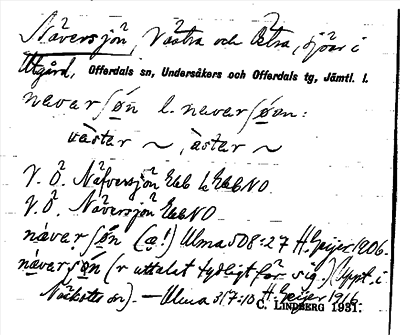 Näversjön, Västra och Östra, sjöar i
Utgård, Offerdals sn, Undersåkers och Offerdals tg, Jämtl. l.
navarʃøn l. navarʃøen:
västar ~, àstar ~
V. Ö. Näfversjön Eab b EabNO.
V. Ö. Näversjön EabNO
nàvarʃøn (a!) Ulma 508:27 H. Geijer 1906.
nàvarʃøn (r uttalat tydligt för sig.) (Uppt. i
Näskotts sn). — Ulma 317:10 H. Geijer 19
C. LINDBERG 1931.